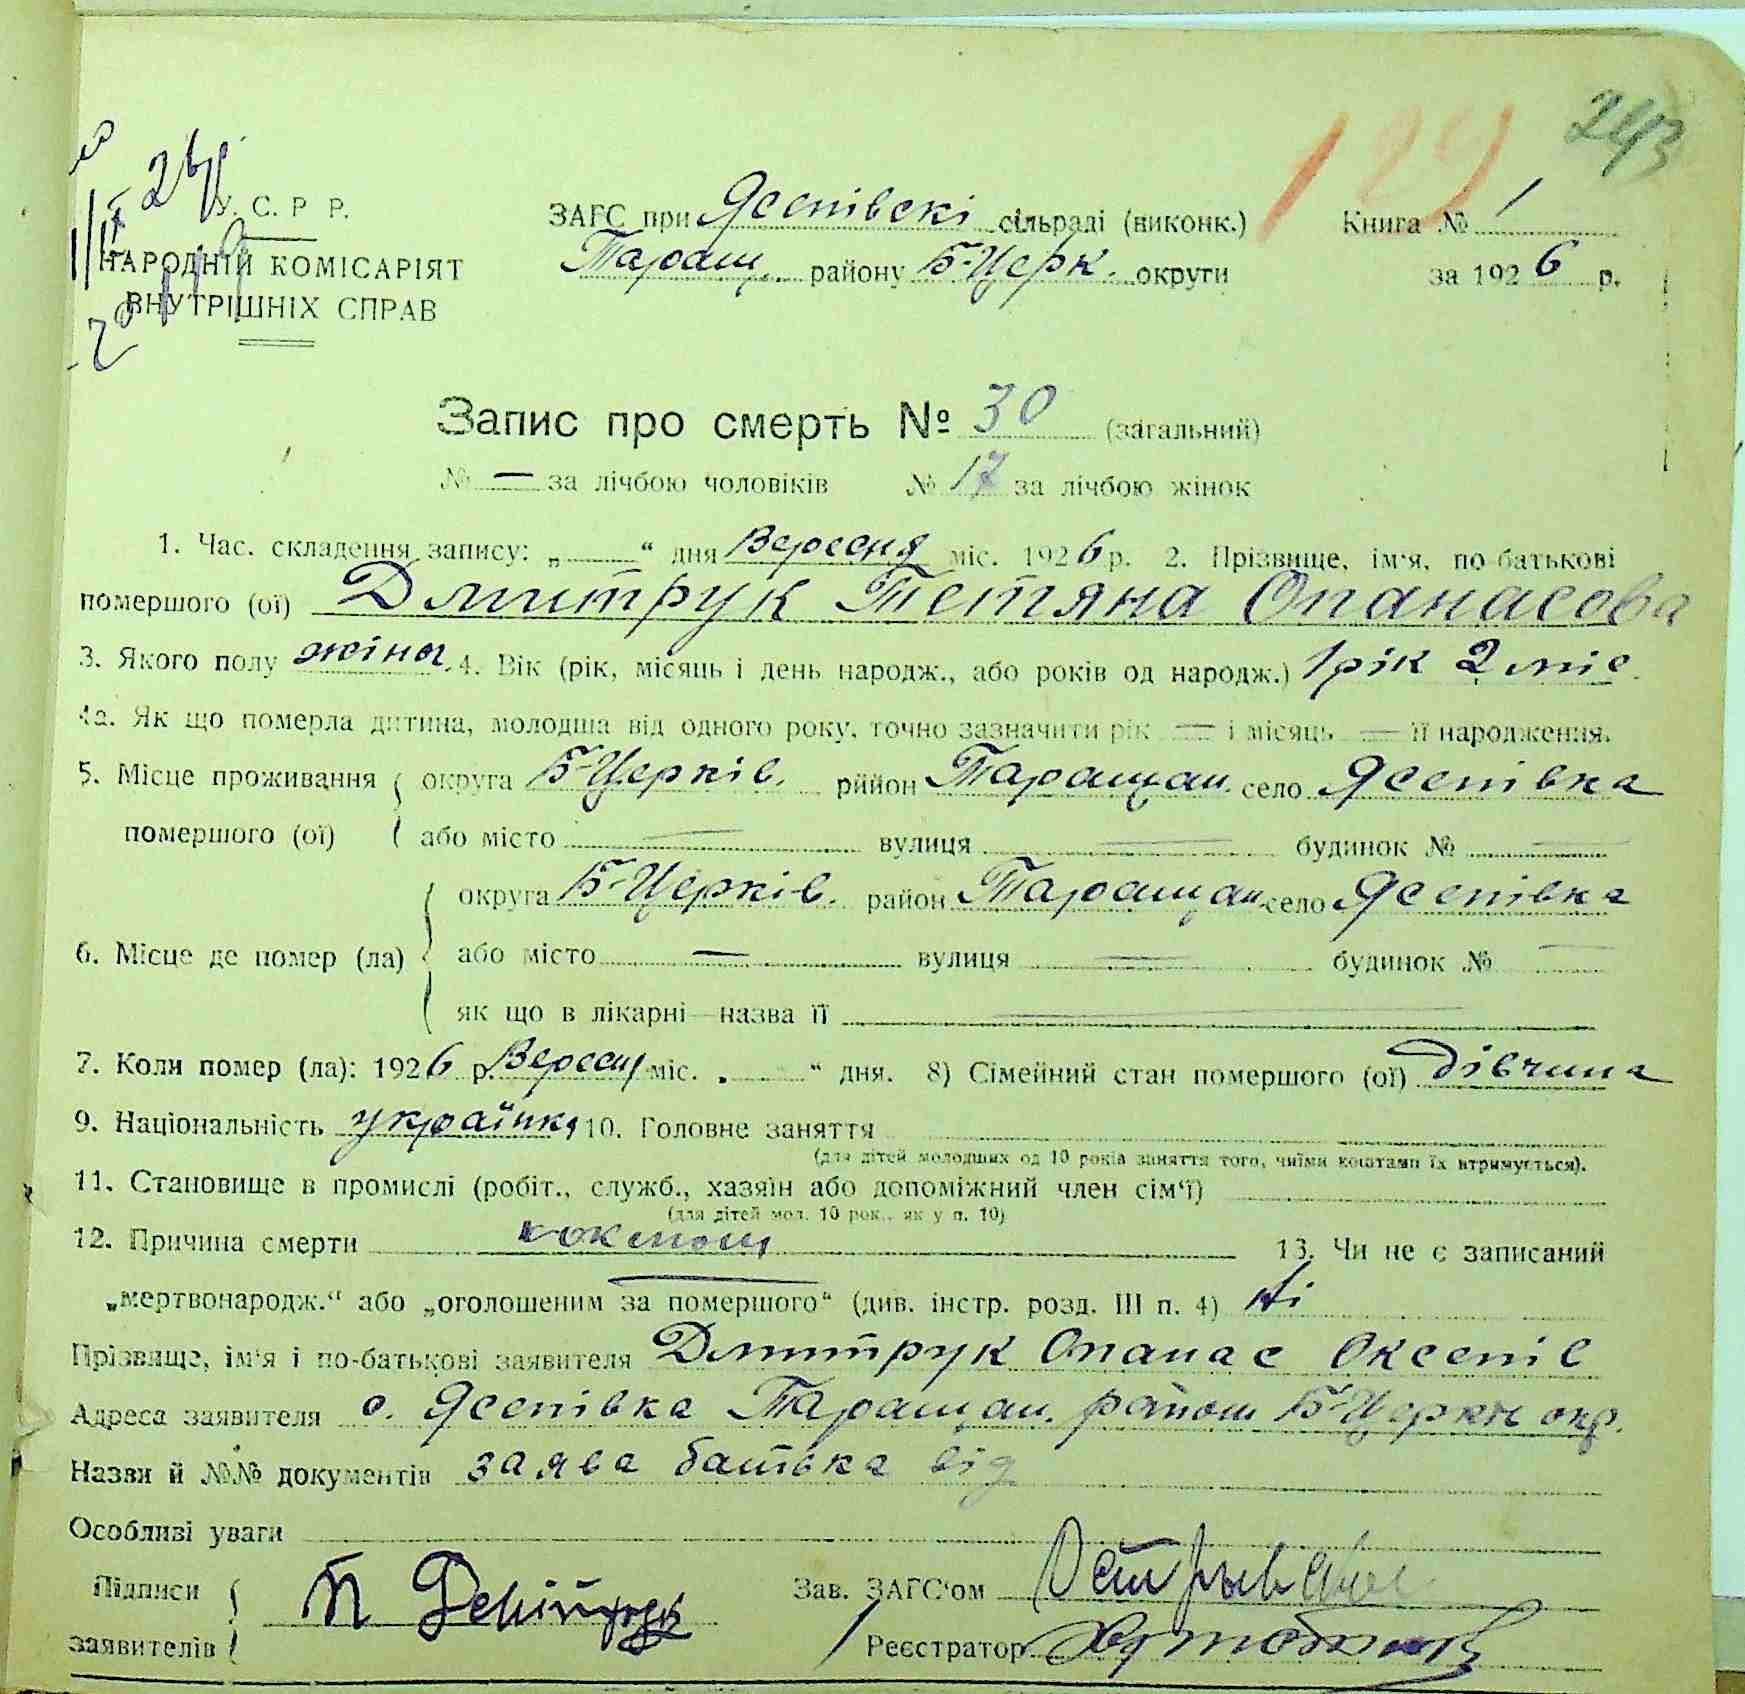 243
129
У. С. Р Р.
НАРОДНІЙ КОМІСАРІЯТ
ВНУТРІШНІХ СПРАВ
ЗАГС при Ясепівскі сільраді (виконк.) Книга № 1
Таращ. району Б-Церк. округи за 1926 р.
Запис про смерть № 30 (загальний)
№ — за лічбою чоловіків № 17 за лічбою жінок
1. Час. складення запису: „ “ дня Вересня міс. 1926 р. 2. Прізвище, ім'я, по-батькові
помершого (ої) Дмитрук Тетяна Опанасова
3. Якого полу жіноч. 4. Вік (рік, місяць і день народж., або років од народж.) 1 рік 2 міс.
4а. Як що померла дитина, молодша від одного року, точно зазначити рік — і місяць — її народження.
5. Місце проживання округа Б-Церків. рййон Таращан. село Ясепівка
помершого (ої) або місто — вулиця — будинок № —
округа Б-Церків. район Таращан. село Ясепівка
6. Місце де помер (ла) або місто — вулиця — будинок № —
як що в лікарні—назва її —
7. Коли помер (ла): 1926 р. Вересня міс. „ “ дня. 8) Сімейний стан помершого (ої) дівчина
9. Національність українка 10. Головне заняття
(для дітей молодших од 10 років заняття того, чиїми коштами їх втримується).
11. Становище в промислі (робіт., служб., хазяїн або допоміжний член сім'ї)
(для дітей мол. 10 рок., як у п. 10)
12. Причина смерти коклюш 13. Чи не є записаний
„мертвонародж.“ або „оголошеним за помершого“ (див. інстр. розд. III п. 4) Ні
Прізвище, ім'я і по-батькові заявителя Дмитрук Опанас Оксепів
Адреса заявителя с. Ясепівка Таращан. район Б-Церків окр.
Назви й №№ документів заява батька від
Особливі уваги
Підписи Зав. ЗАГС'ом
заявителів Реєстратор